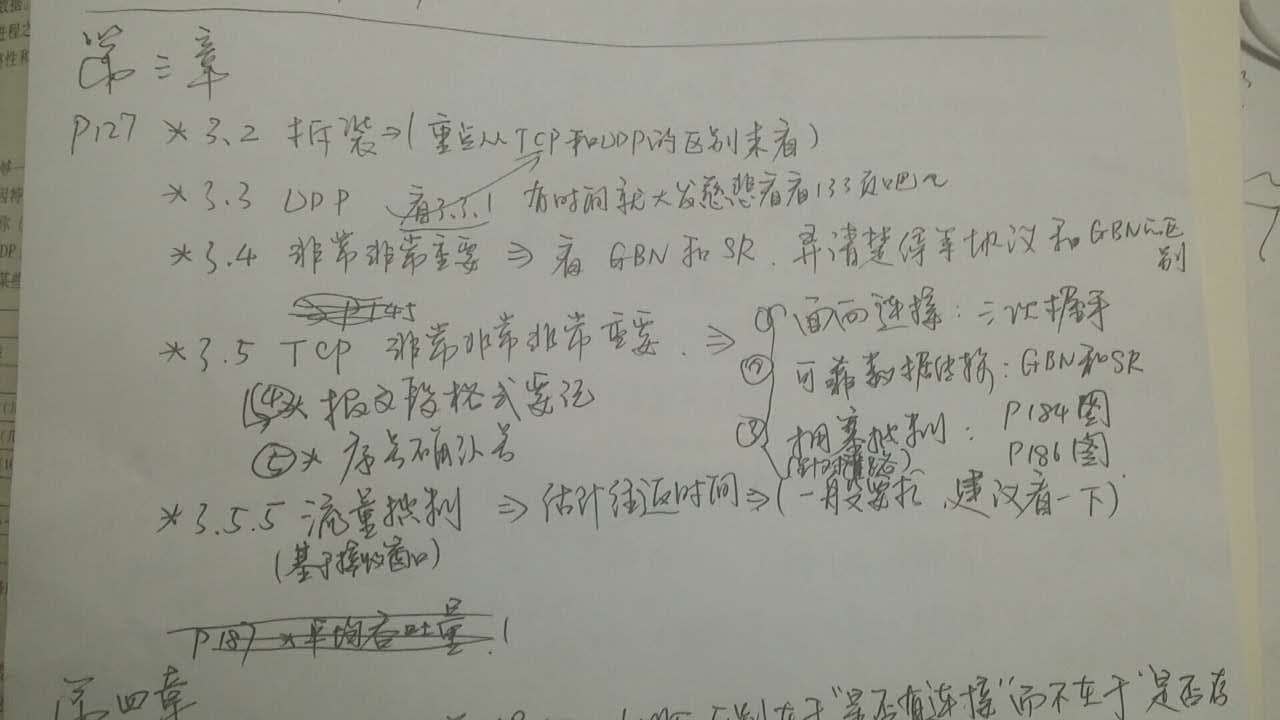 第三章
P127 * 3.2 拆装⇒(重点从TCP和UDP的区别来看)
* 3.3 UDP 看3.3.1 有时间就大发慈悲看看133页吧~
* 3.4 非常非常重要 ⇒ 看 GBN 和 SR. 弄清楚停等协议和GBN的区别
P145
* 3.5 TCP 非常非常非常重要. ⇒ ① 面向连接: 三次握手
② 可靠数据传输: GBN和SR
④* 报文段格式要记
③ 拥塞控制: P184图
(针对链路) P186图
⑤* 序号确认号
* 3.5.5 流量控制 ⇒ 估计往返时间⇒(一般要考, 建议看一下)
(基于接收窗口)
P187 * 平均吞吐量!
第四章
区别在于"是否有连接"而不在于"是否存
数据
进程之
性和
DP
某些